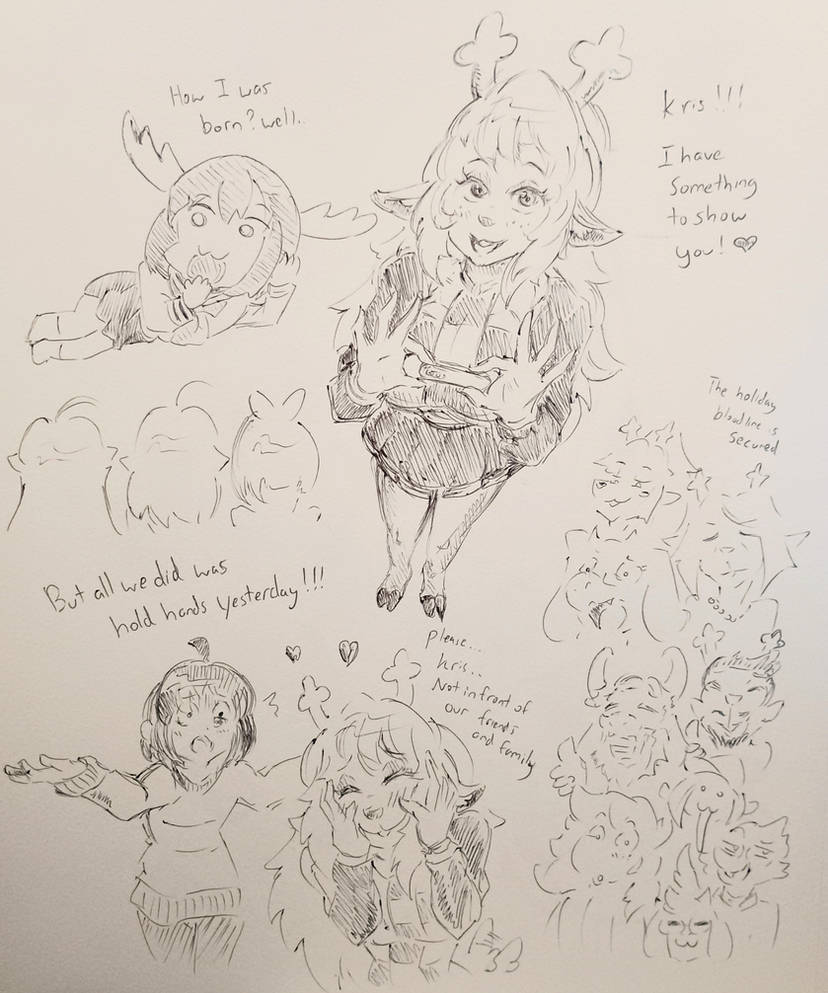 How I was
born? well..
Kris!!!
I have
something
to show
you!
The holiday
bloodline is
secured
But all we did was
hold hands yesterday!!!
please...
Kris..
Not in front of
our friends
and family